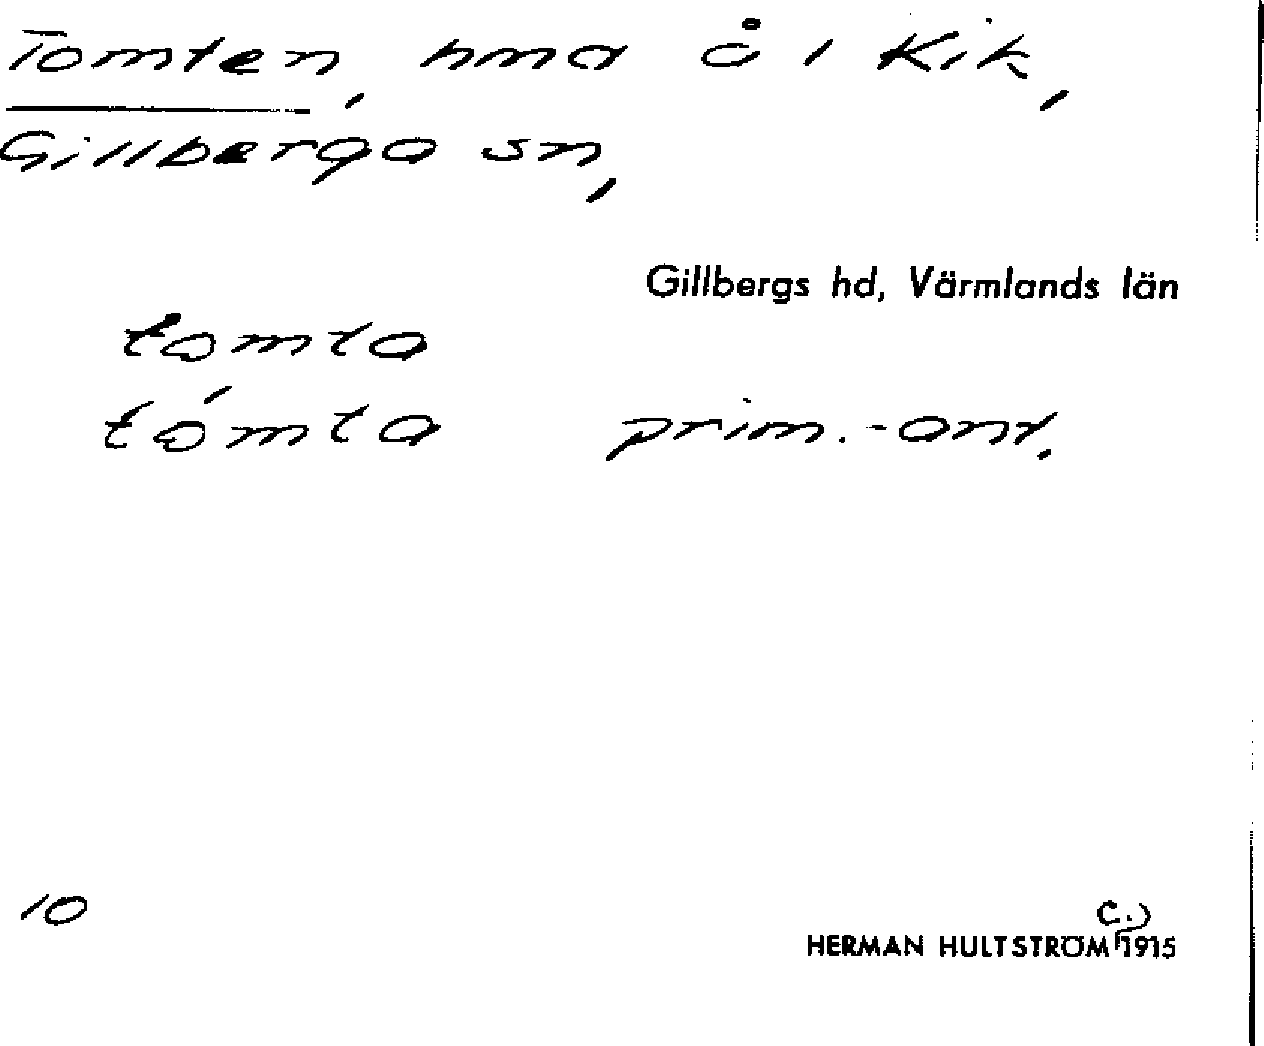 Tomten, hmd å i Kik,
Gillberga sn,
Gillbergs hd, Värmlands län
tomta
tómta prim.-ant.
10
c.
HERMAN HULTSTRÖM 1915